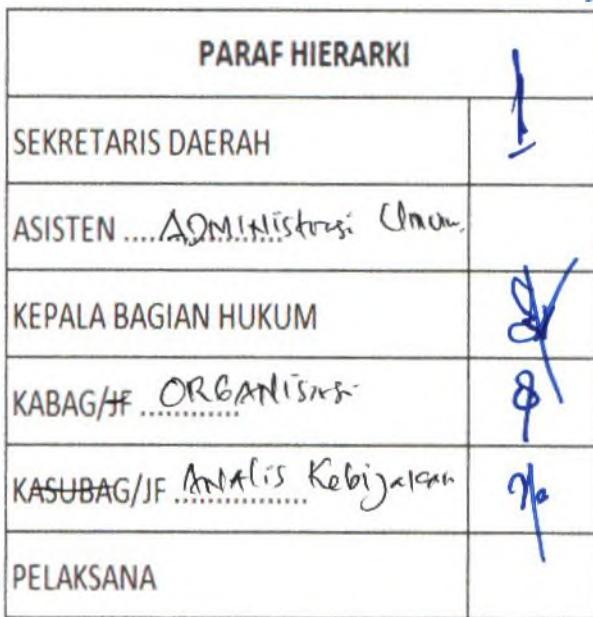 PARAF HIERARKI
SEKRETARIS DAERAH
ASISTEN .... ADMINIStrasi Umum
KEPALA BAGIAN HUKUM
KABAG/JF ORGANISasi
KASUBAG/JF ANALis Kebijakan
PELAKSANA